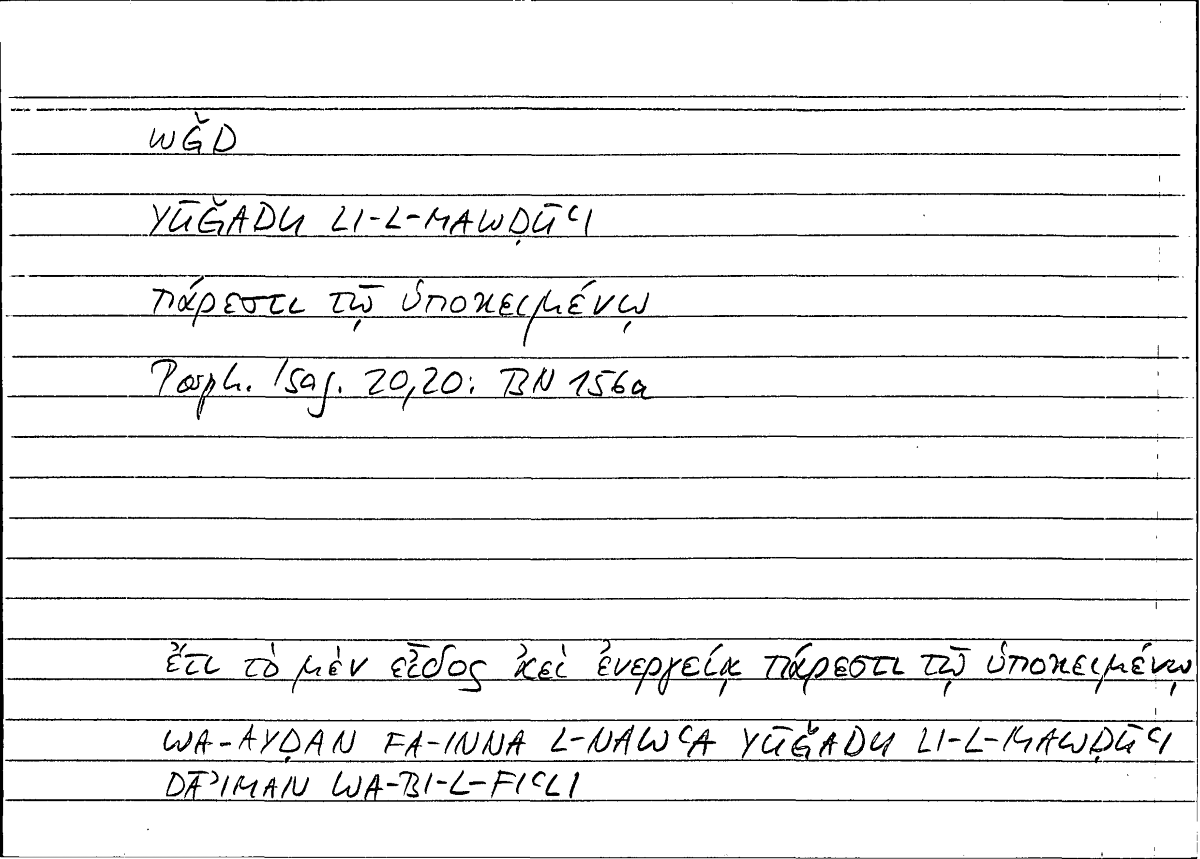 WǦD
YŪǦADU LI-L-MAWḌŪʿI
πάρεστι τῷ ὑποκειμένῳ
Porph. Isag. 20,20: BN 156a
ἔτι τὸ μὲν εἶδος ἀεὶ ἐνεργείᾳ πάρεστι τῷ ὑποκειμένῳ
WA-AYḌAN FA-INNA L-NAWʿA YŪǦADU LI-L-MAWḌŪʿI
DĀʾIMAN WA-BI-L-FIʿLI